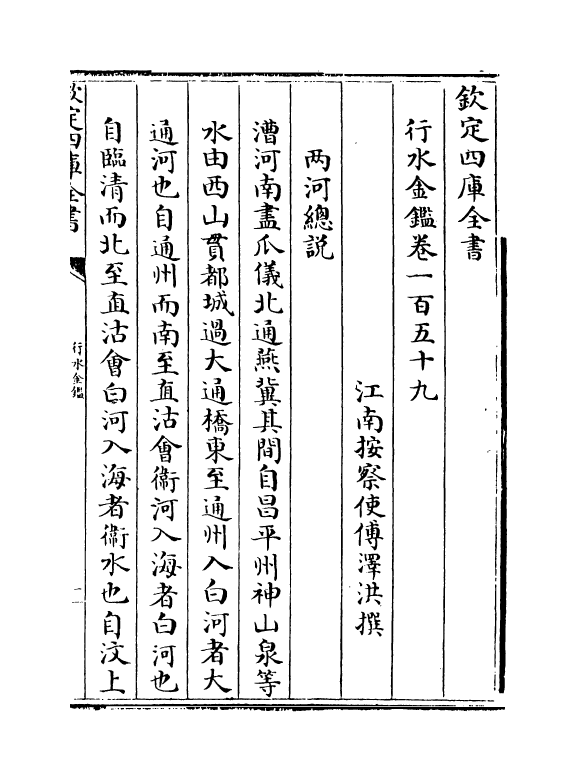 欽定四庫全書
行水金鑑卷一百五十九
江南按察使傅澤洪撰
两河總説
漕河南盡瓜儀北通燕冀其間自昌平州神山泉等
水由西山貫都城過大通橋東至通州入白河者大
通河也自通州而南至直沽會衞河入海者白河也
自臨清而北至直沽會白河入海者衞水也自汶上
欽定四庫全書
行水金鑑